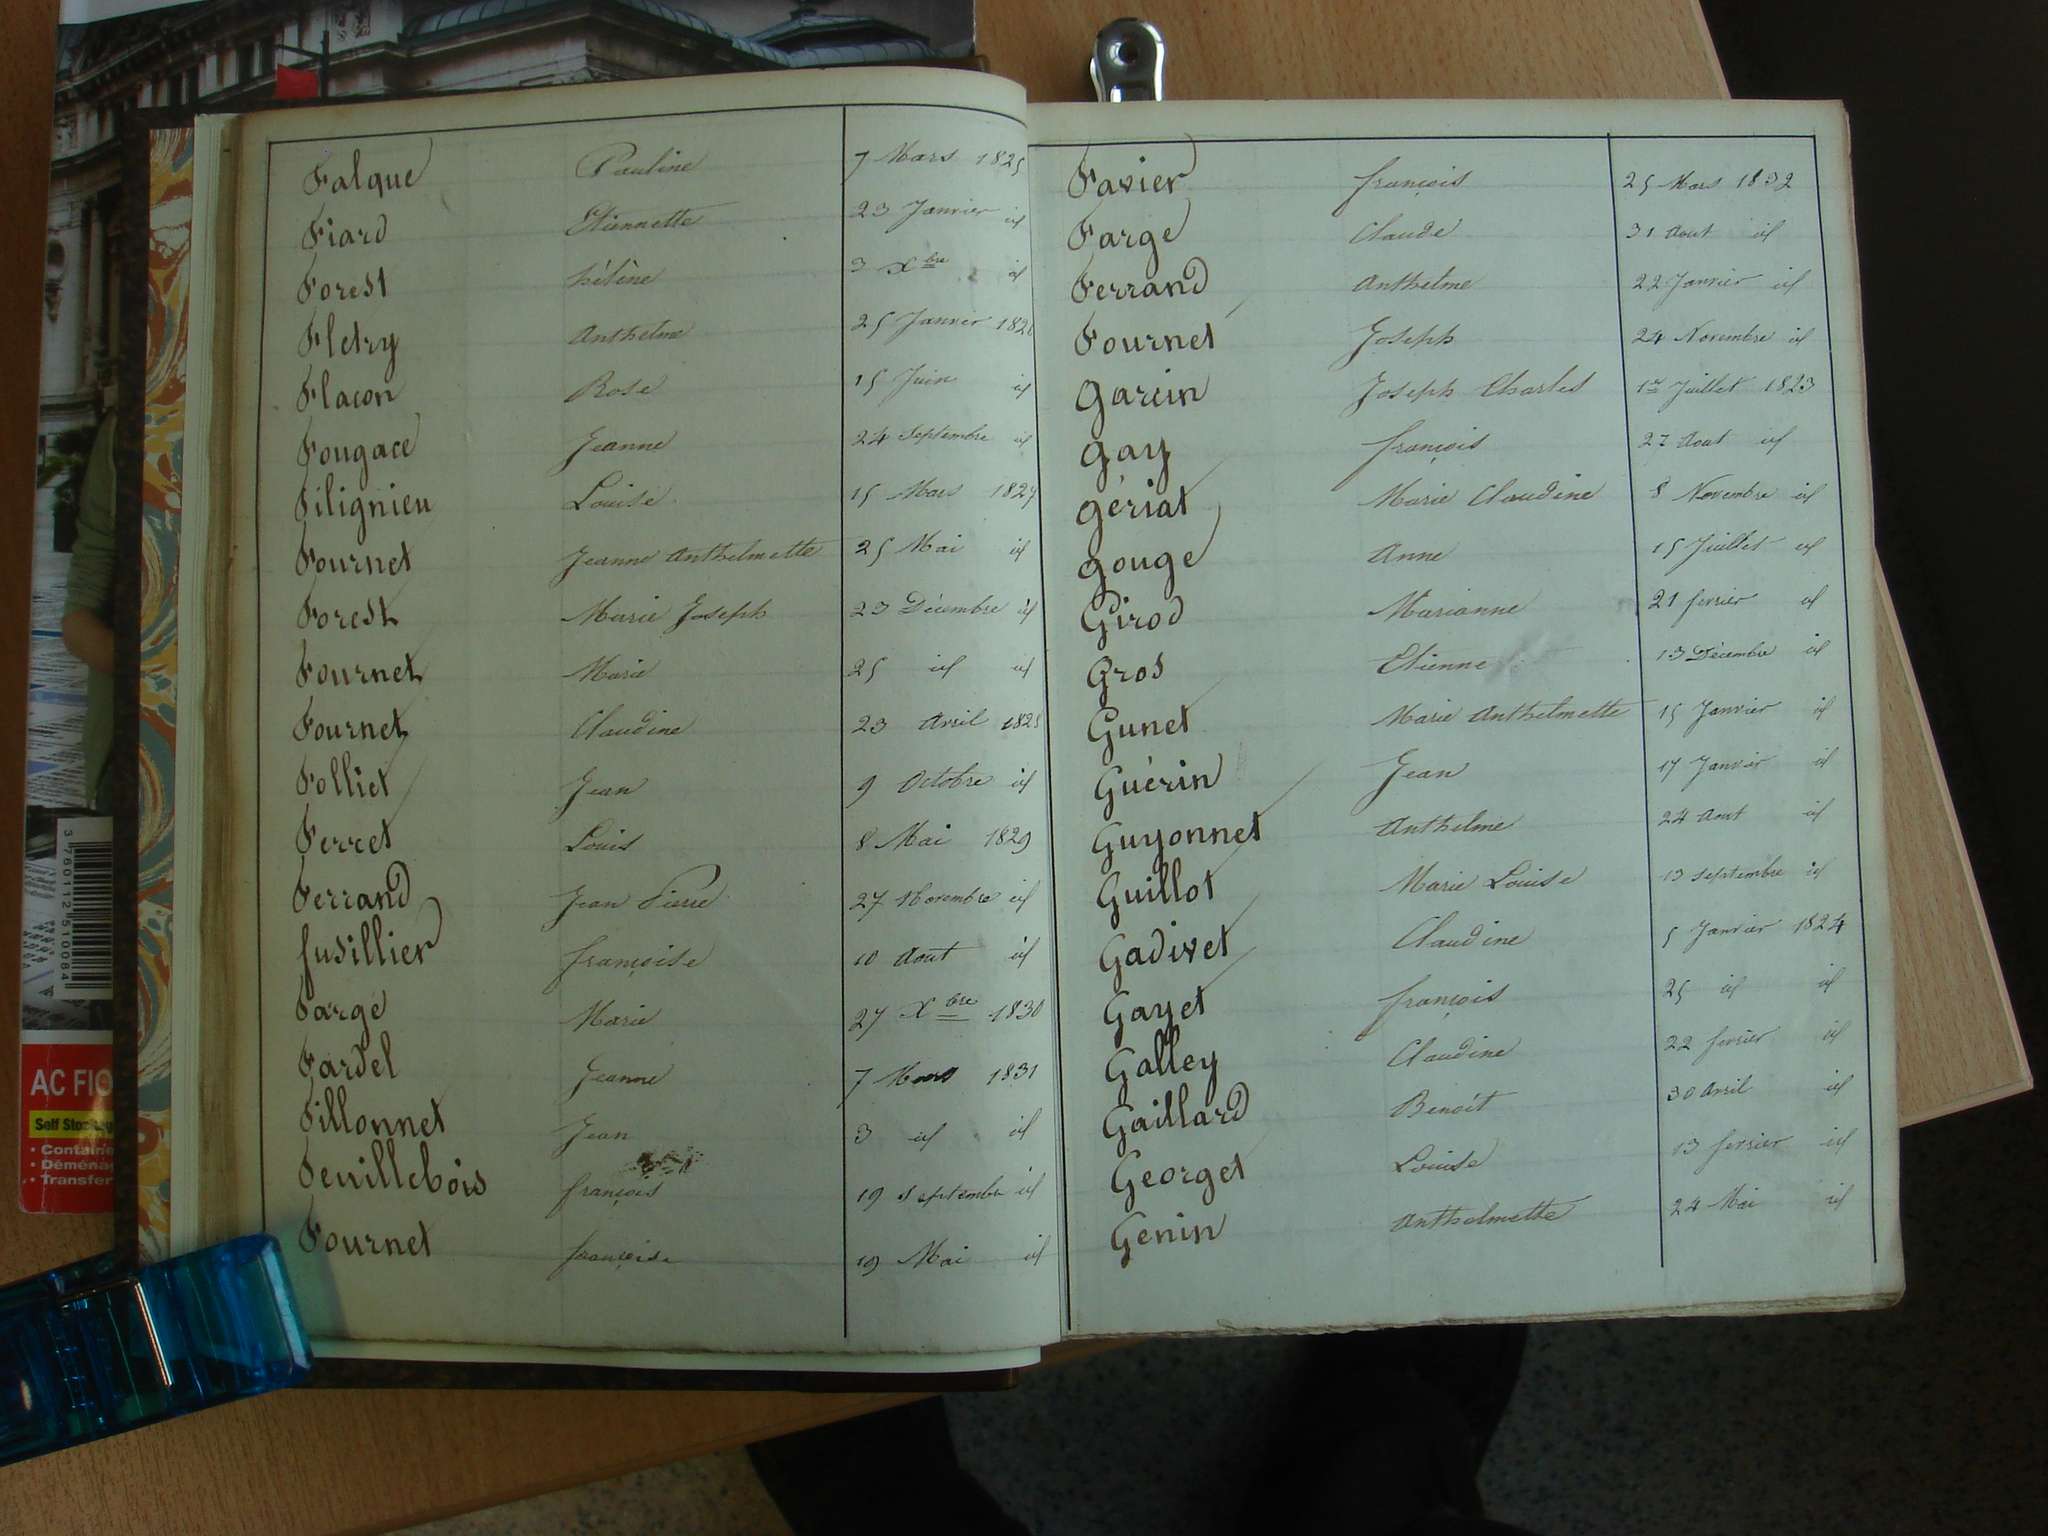 Falque Pauline 7 Mars 1825
Fiard Etiennette 23 Janvier id
Forest hélène 3 Xbre id
Fletry Anthelme 25 Janvier 1826
Flacon Rose 15 Juin id
Fougace Jeanne 24 Septembre id
Filignieu Louise 15 Mars 1827
Fournet Jeanne Anthelmette 25 Mai id
Forest Marie Joseph 23 Décembre id
Fournet Marie 25 id id
Fournet Claudine 23 Avril 1828
Folliet Jean 9 Octobre id
Ferret Louis 8 Mai 1829
Ferrand Jean Pierre 27 Novembre id
fusillier françoise 10 Aout id
Farge Marie 27 Xbre 1830
Fardel Jeanne 7 Mars 1831
Fillonnet Jean 3 id id
Feuillebois françois 19 septembre id
Fournet françoise 19 Mai id
Favier françois 25 Mars 1832
Farge Claude 31 Aout id
Ferrand Anthelme 22 Janvier id
Fournet Joseph 24 Novembre id
Garcin Joseph Charles 1er Juillet 1823
Gay françois 27 Aout id
Gériat Marie Claudine 8 Novembre id
Gouge Anne 15 Juillet id
Girod Marianne 21 fevrier id
Gros Etienne 13 Décembre id
Gunet Marie Anthelmette 15 Janvier id
Guérin Jean 17 Janvier id
Guyonnet Anthelme 24 Aout id
Guillot Marie Louise 13 septembre id
Gadivet Claudine 5 Janvier 1824
Gayet françois 25 id id
Galley Claudine 22 fevrier id
Gaillard Benoit 30 Avril id
Georget Louise 13 fevrier id
Genin Anthelmette 24 Mai id
3 760112 510084
AC FIO
Self Stockag
• Containe
• Déména
• Transfer